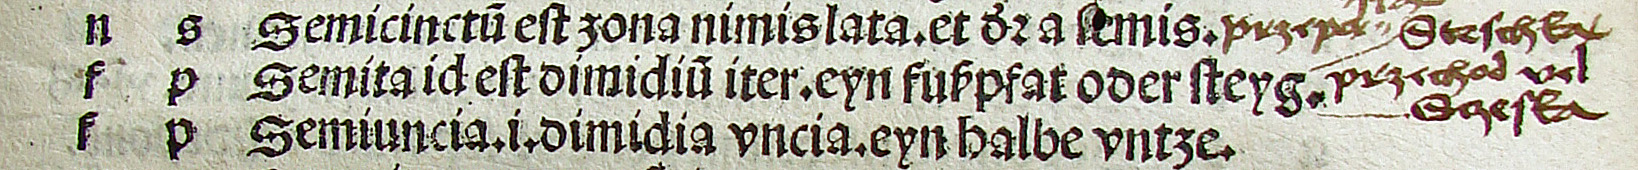 n s Semicinctū est zona nimis lata. et dr̄ a semis. Steschka
f p Semita id est dimidiū iter. eyn fußpfat oder steyg. przechod vel
Sczeska
f p Semiuncia. i. dimidia vncia. eyn halbe vntze.